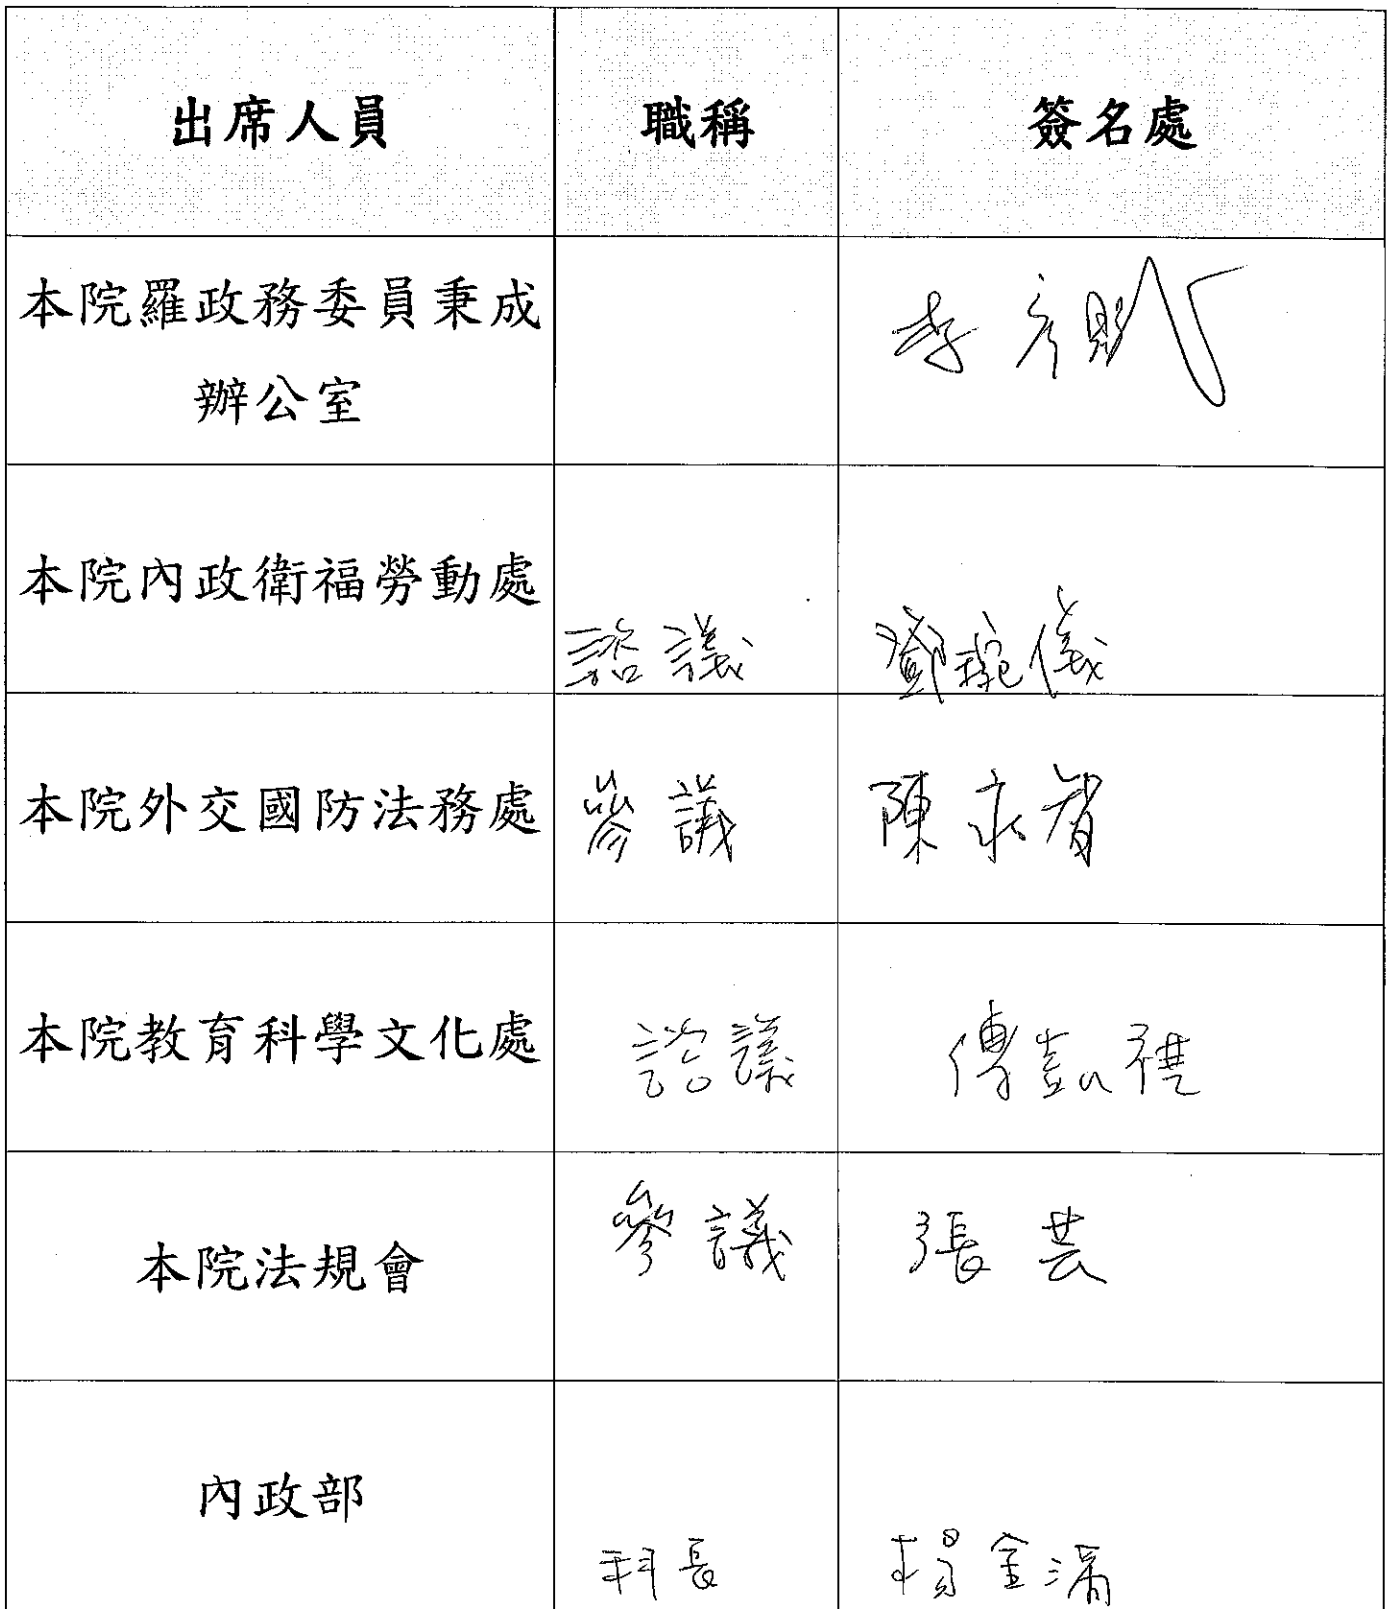 出席人員 職稱 簽名處
本院羅政務委員秉成
辦公室
李彥賦
本院內政衛福勞動處 諮議 鄧琬儀
本院外交國防法務處 參議 陳永智
本院教育科學文化處 諮議 傅凱祺
本院法規會 參議 張芸
內政部 科長 楊金滿